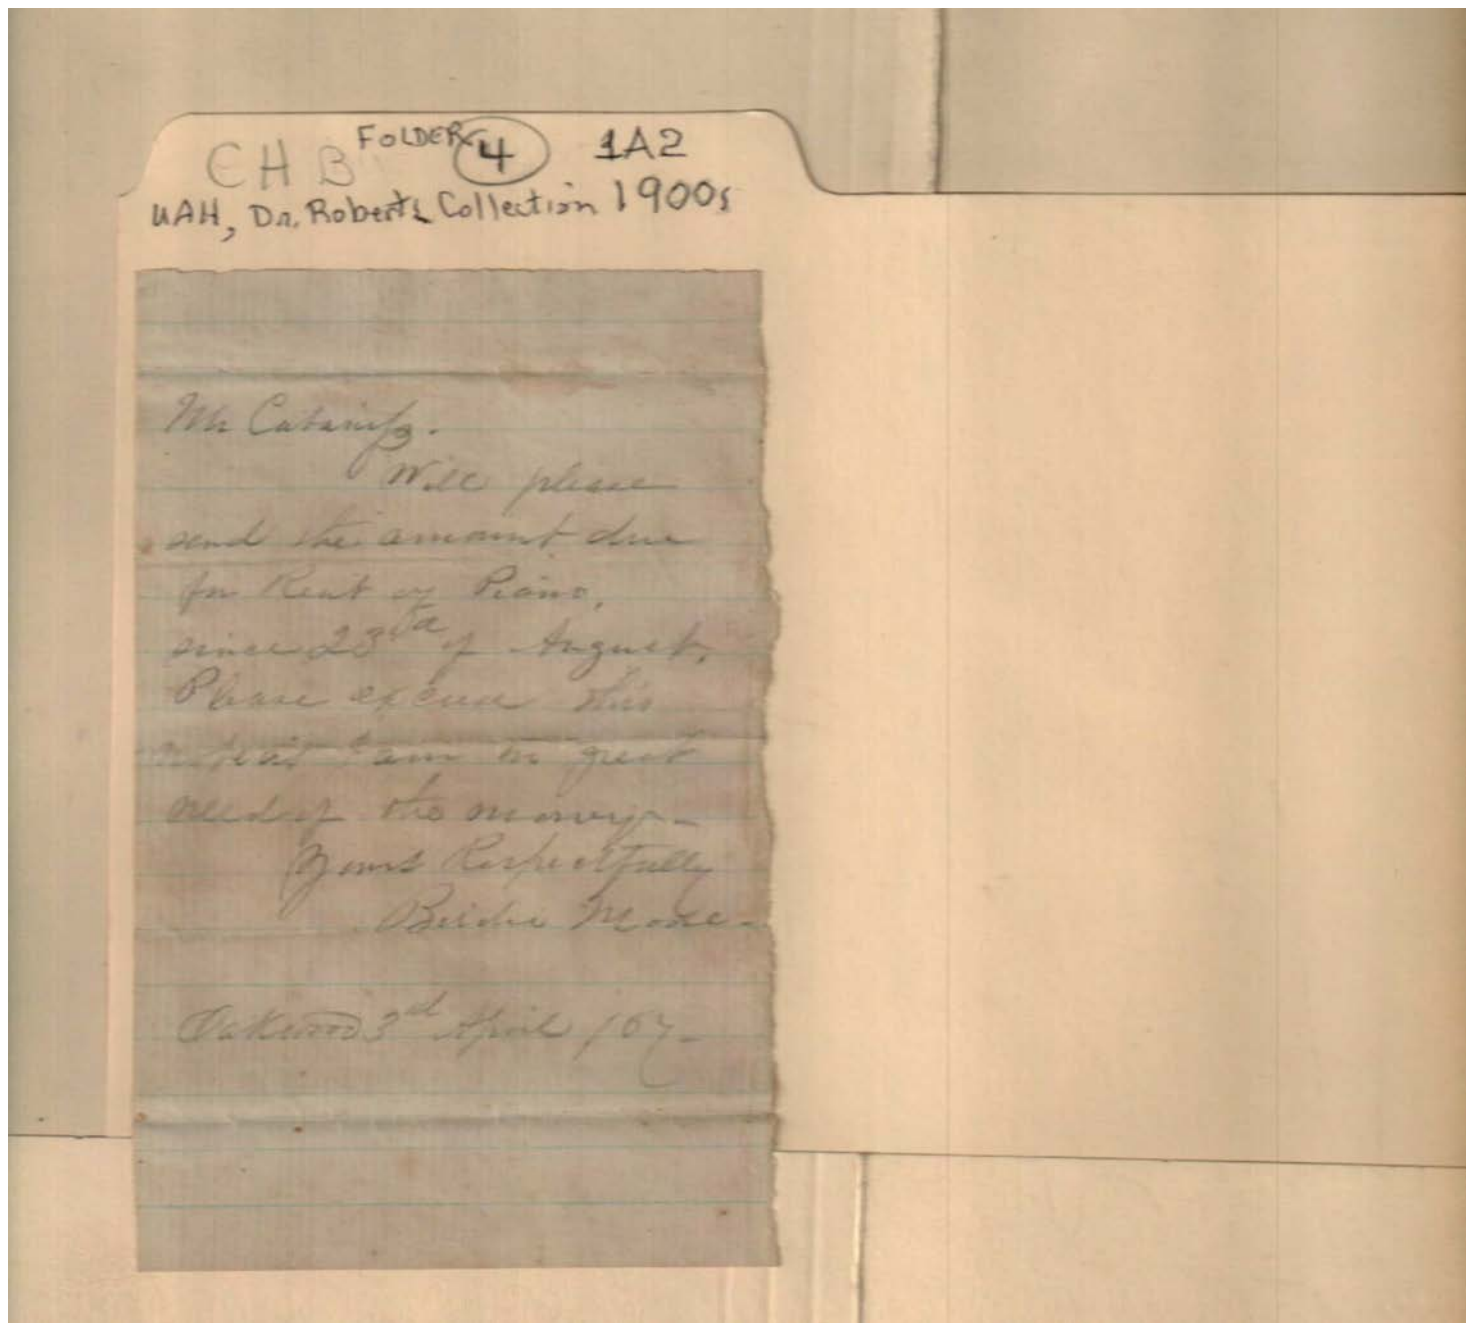 CHB FOLDER 4 1A2
UAH, Dr. Roberts Collection 1900s
Mr Cabaniss.
Will please
send the amount due
for Rent of Piano,
since 23rd of August.
Please excuse this
I am in great
need of the money–
Yours Respectfully
Birdie
Oakwood 3rd April /67–